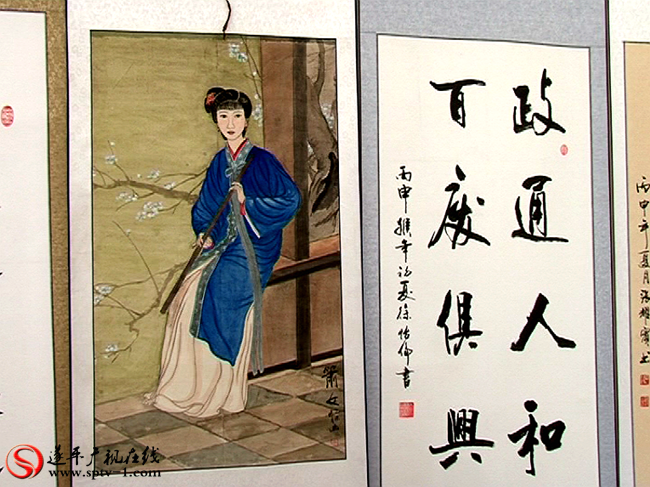 政通人和
百废俱興
丙申猴年初夏徐
書
丙申年夏月
遂平广视在线
www.sptv-1.com